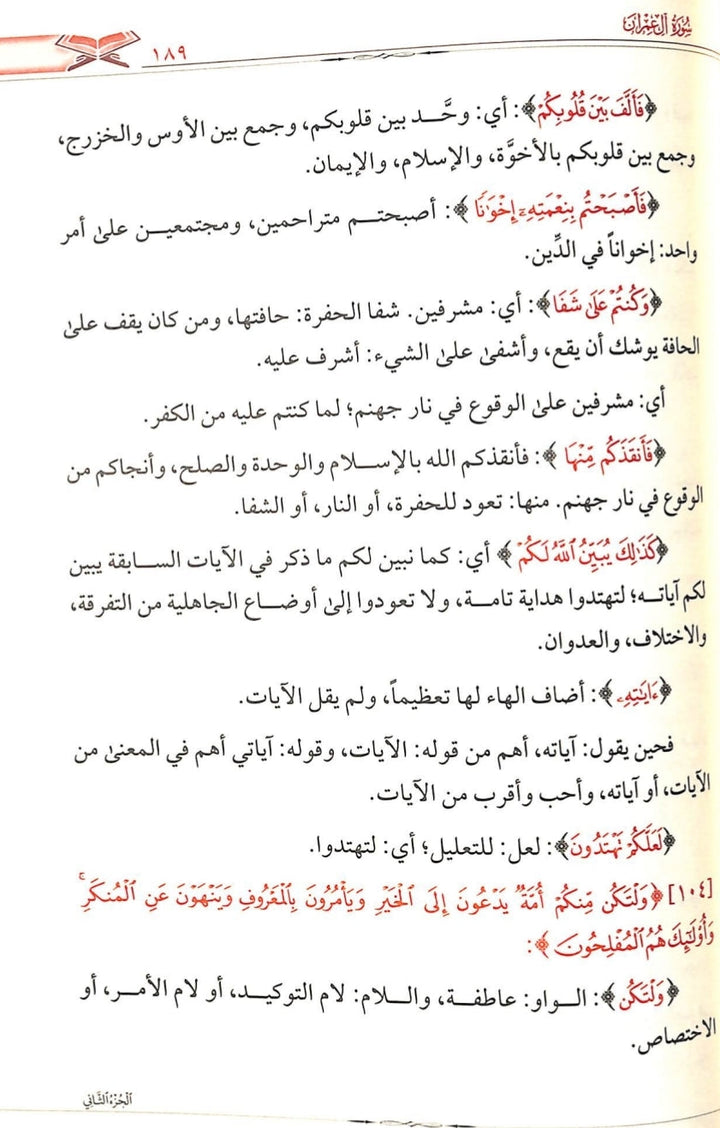 سُورَةُ آلِ عِمْرَانَ
١٨٩
﴿فَأَلَّفَ بَيْنَ قُلُوبِكُمْ﴾: أي: وحَّـد بين قلوبكم، وجمع بين الأوس والخزرج،
وجمع بين قلوبكم بالأخوَّة، والإسلام، والإيمان.
﴿فَأَصْبَحْتُم بِنِعْمَتِهِۦٓ إِخْوَٰنًا﴾: أصبحتـم متراحمين، ومجتمعيـن علىٰ أمر
واحد: إخواناً في الدِّين.
﴿وَكُنتُمْ عَلَىٰ شَفَا﴾: أي: مشرفين. شفا الحفرة: حافتها، ومن كان يقف علىٰ
الحافة يوشك أن يقع، وأشفىٰ علىٰ الشيء: أشرف عليه.
أي: مشرفين علىٰ الوقوع في نار جهنم؛ لما كنتم عليه من الكفر.
﴿فَأَنقَذَكُم مِّنْهَا﴾: فأنقذكم الله بالإسـلام والوحدة والصلح، وأنجاكم من
الوقوع في نار جهنم. منها: تعود للحفرة، أو النار، أو الشفا.
﴿كَذَٰلِكَ يُبَيِّنُ ٱللَّهُ لَكُمْ﴾ أي: كما نبين لكم ما ذكر في الآيات السـابقة يبين
لكم آياتـه؛ لتهتدوا هداية تامـة، ولا تعودوا إلىٰ أوضـاع الجاهلية من التفرقة،
والاختلاف، والعدوان.
﴿ءَايَٰتِهِۦ﴾: أضاف الهاء لها تعظيماً، ولم يقل الآيات.
فحين يقول: آياته، أهم من قوله: الآيات، وقوله: آياتي أهم في المعنىٰ من
الآيات، أو آياته، وأحب وأقرب من الآيات.
﴿لَعَلَّكُمْ تَهْتَدُونَ﴾: لعل: للتعليل؛ أي: لتهتدوا.
[١٠٤] ﴿وَلْتَكُن مِّنكُمْ أُمَّةٌ يَدْعُونَ إِلَى ٱلْخَيْرِ وَيَأْمُرُونَ بِٱلْمَعْرُوفِ وَيَنْهَوْنَ عَنِ ٱلْمُنكَرِ ۚ
وَأُو۟لَٰٓئِكَ هُمُ ٱلْمُفْلِحُونَ﴾:
﴿وَلْتَكُن﴾: الـواو: عاطفـة، والـلام: لام التوكيـد، أو لام الأمـر، أو
الاختصاص.
الجُزْءُ الثَّانِي